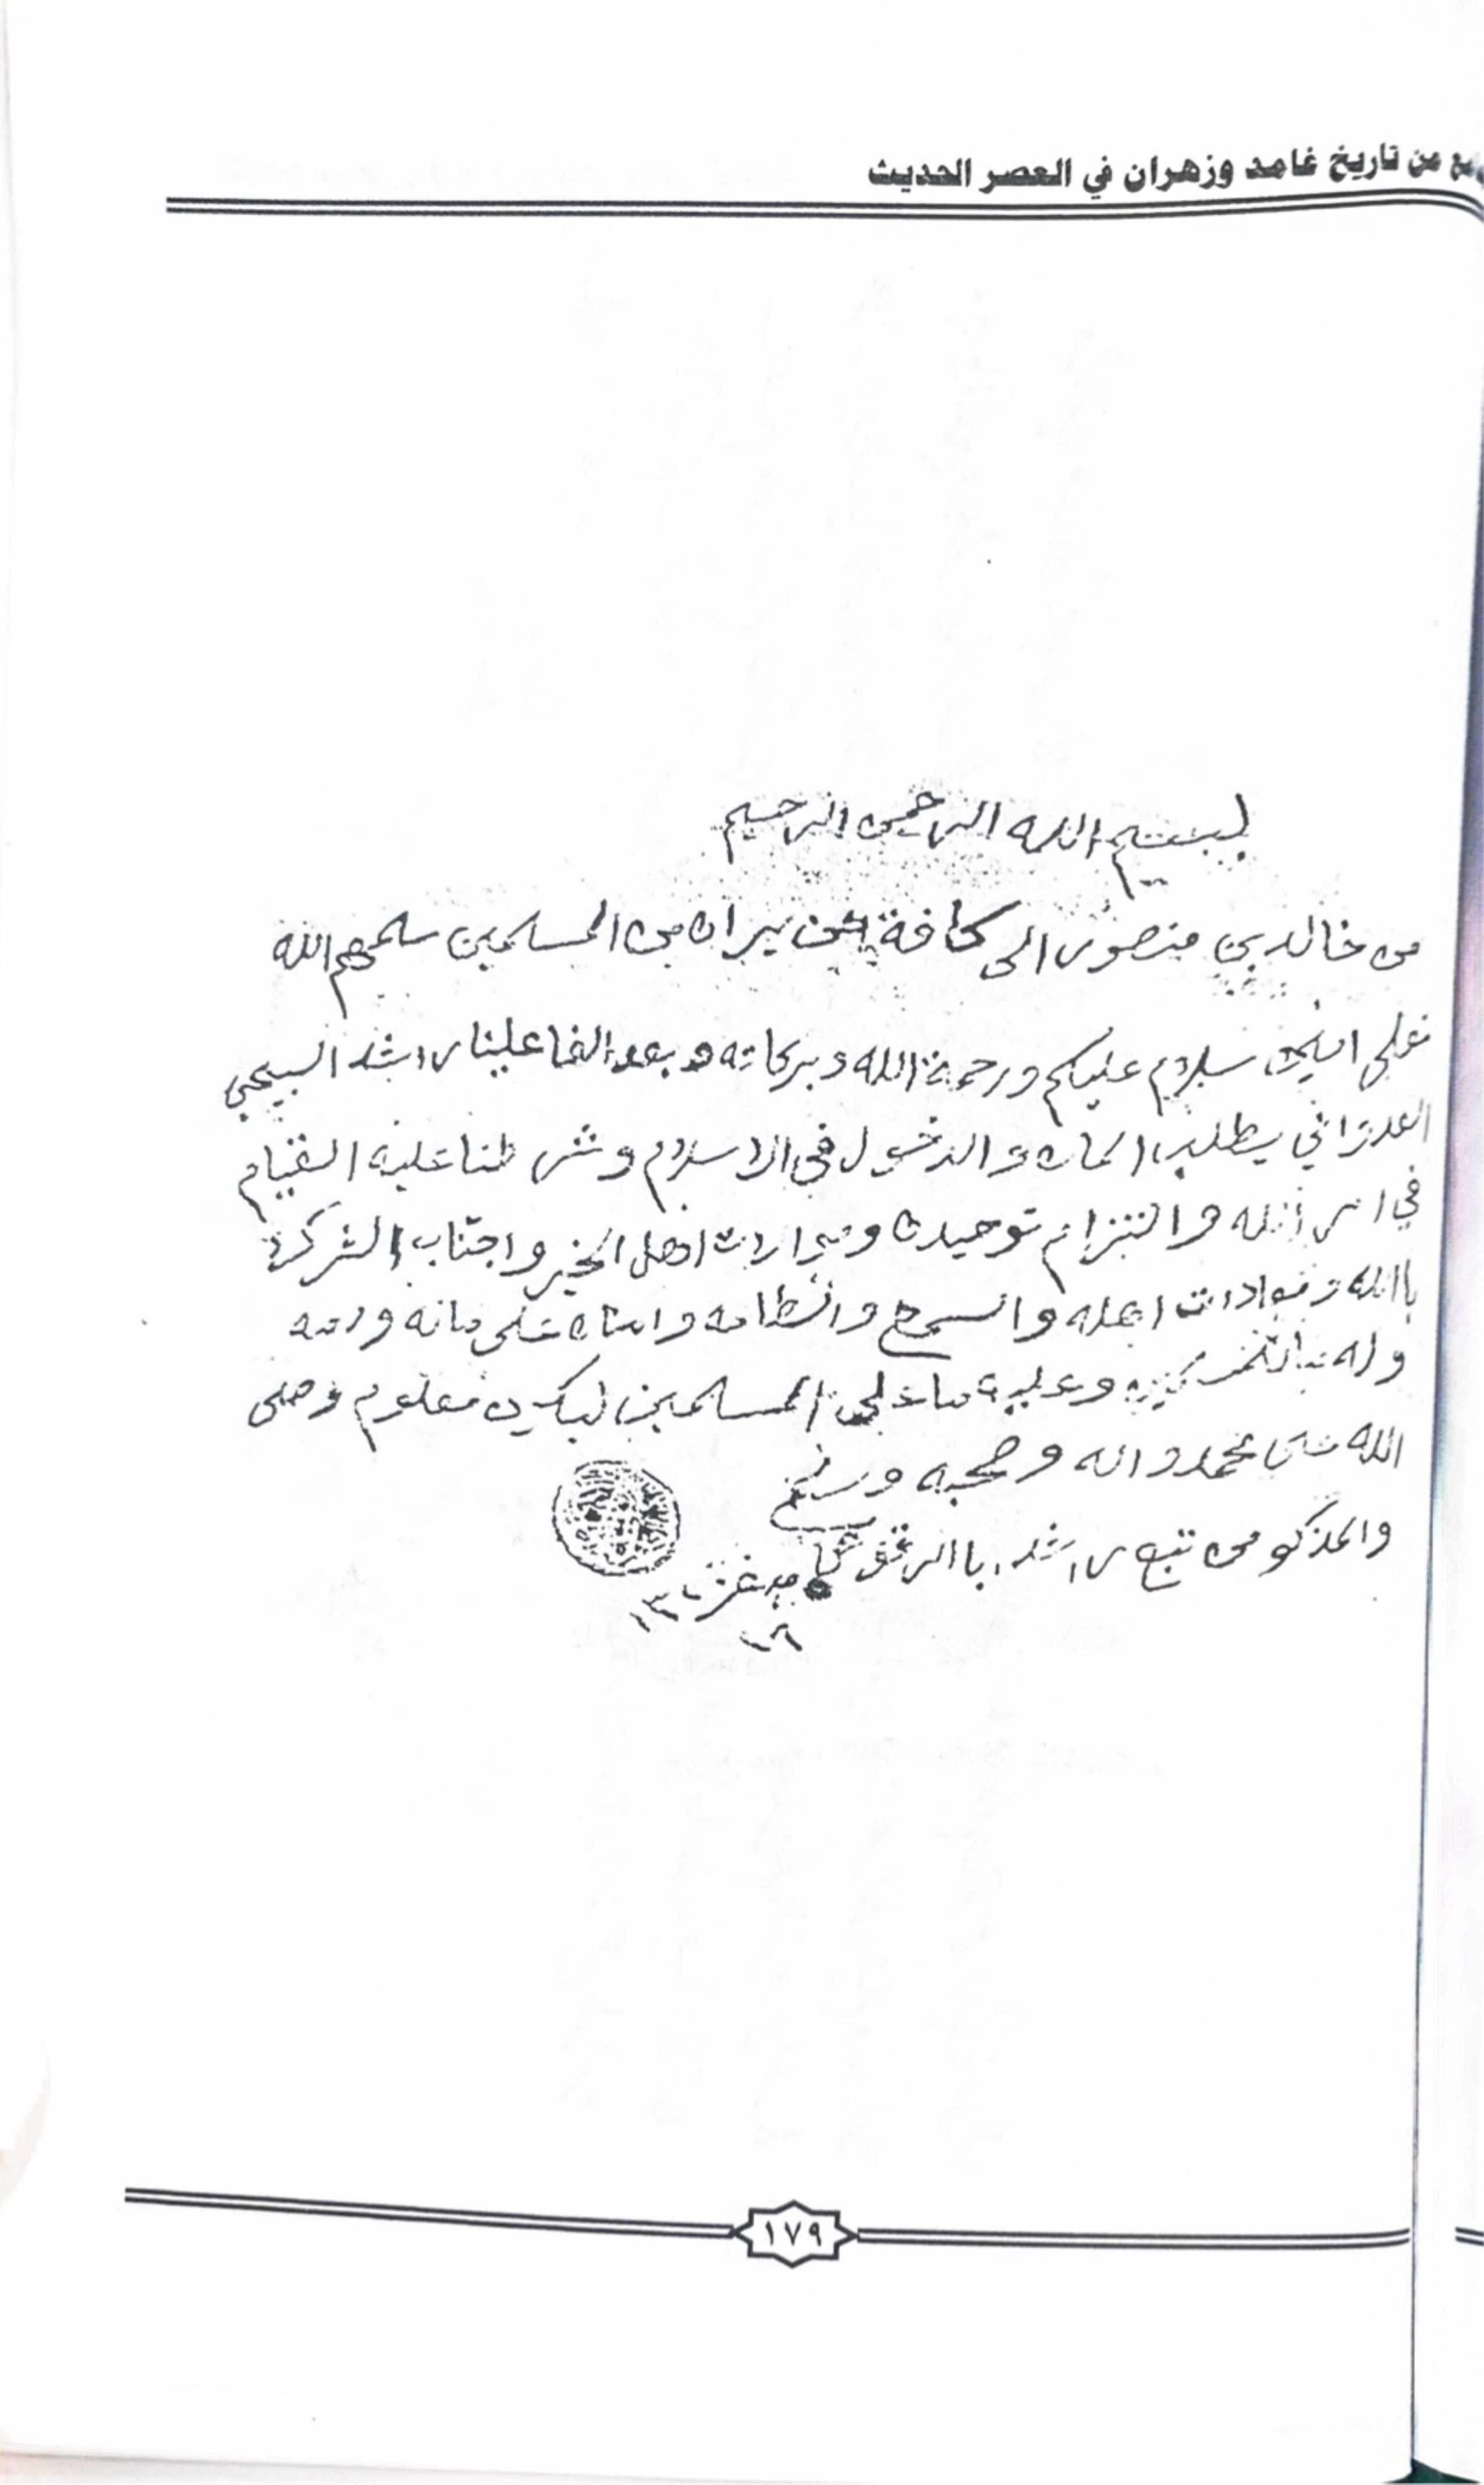 من تاريخ غامد وزهران في العصر الحديث
بسم الله الرحمن الرحيم
من خالد بن منصور الى كافة من يراه من المسلمين سلمهم الله
سلام عليكم ورحمة الله وبركاته وبعد الفا علينا راشد السبيحي
العدواني يطلب الامان والدخول في الاسلام وشرطنا عليه القيام
في امر الله والتزام توحيده وموالات اهل الخير واجتناب الشرك
باالله ومعادات اهله والسمع والطاعه وامناه على ماله ودمه
وله ما للمسلمين وعليه ما على المسلمين ليكون معلوم وصلى
الله على محمد واله وصحبه وسلم
والمذكور من تبع راشد
١٦
١٧٩